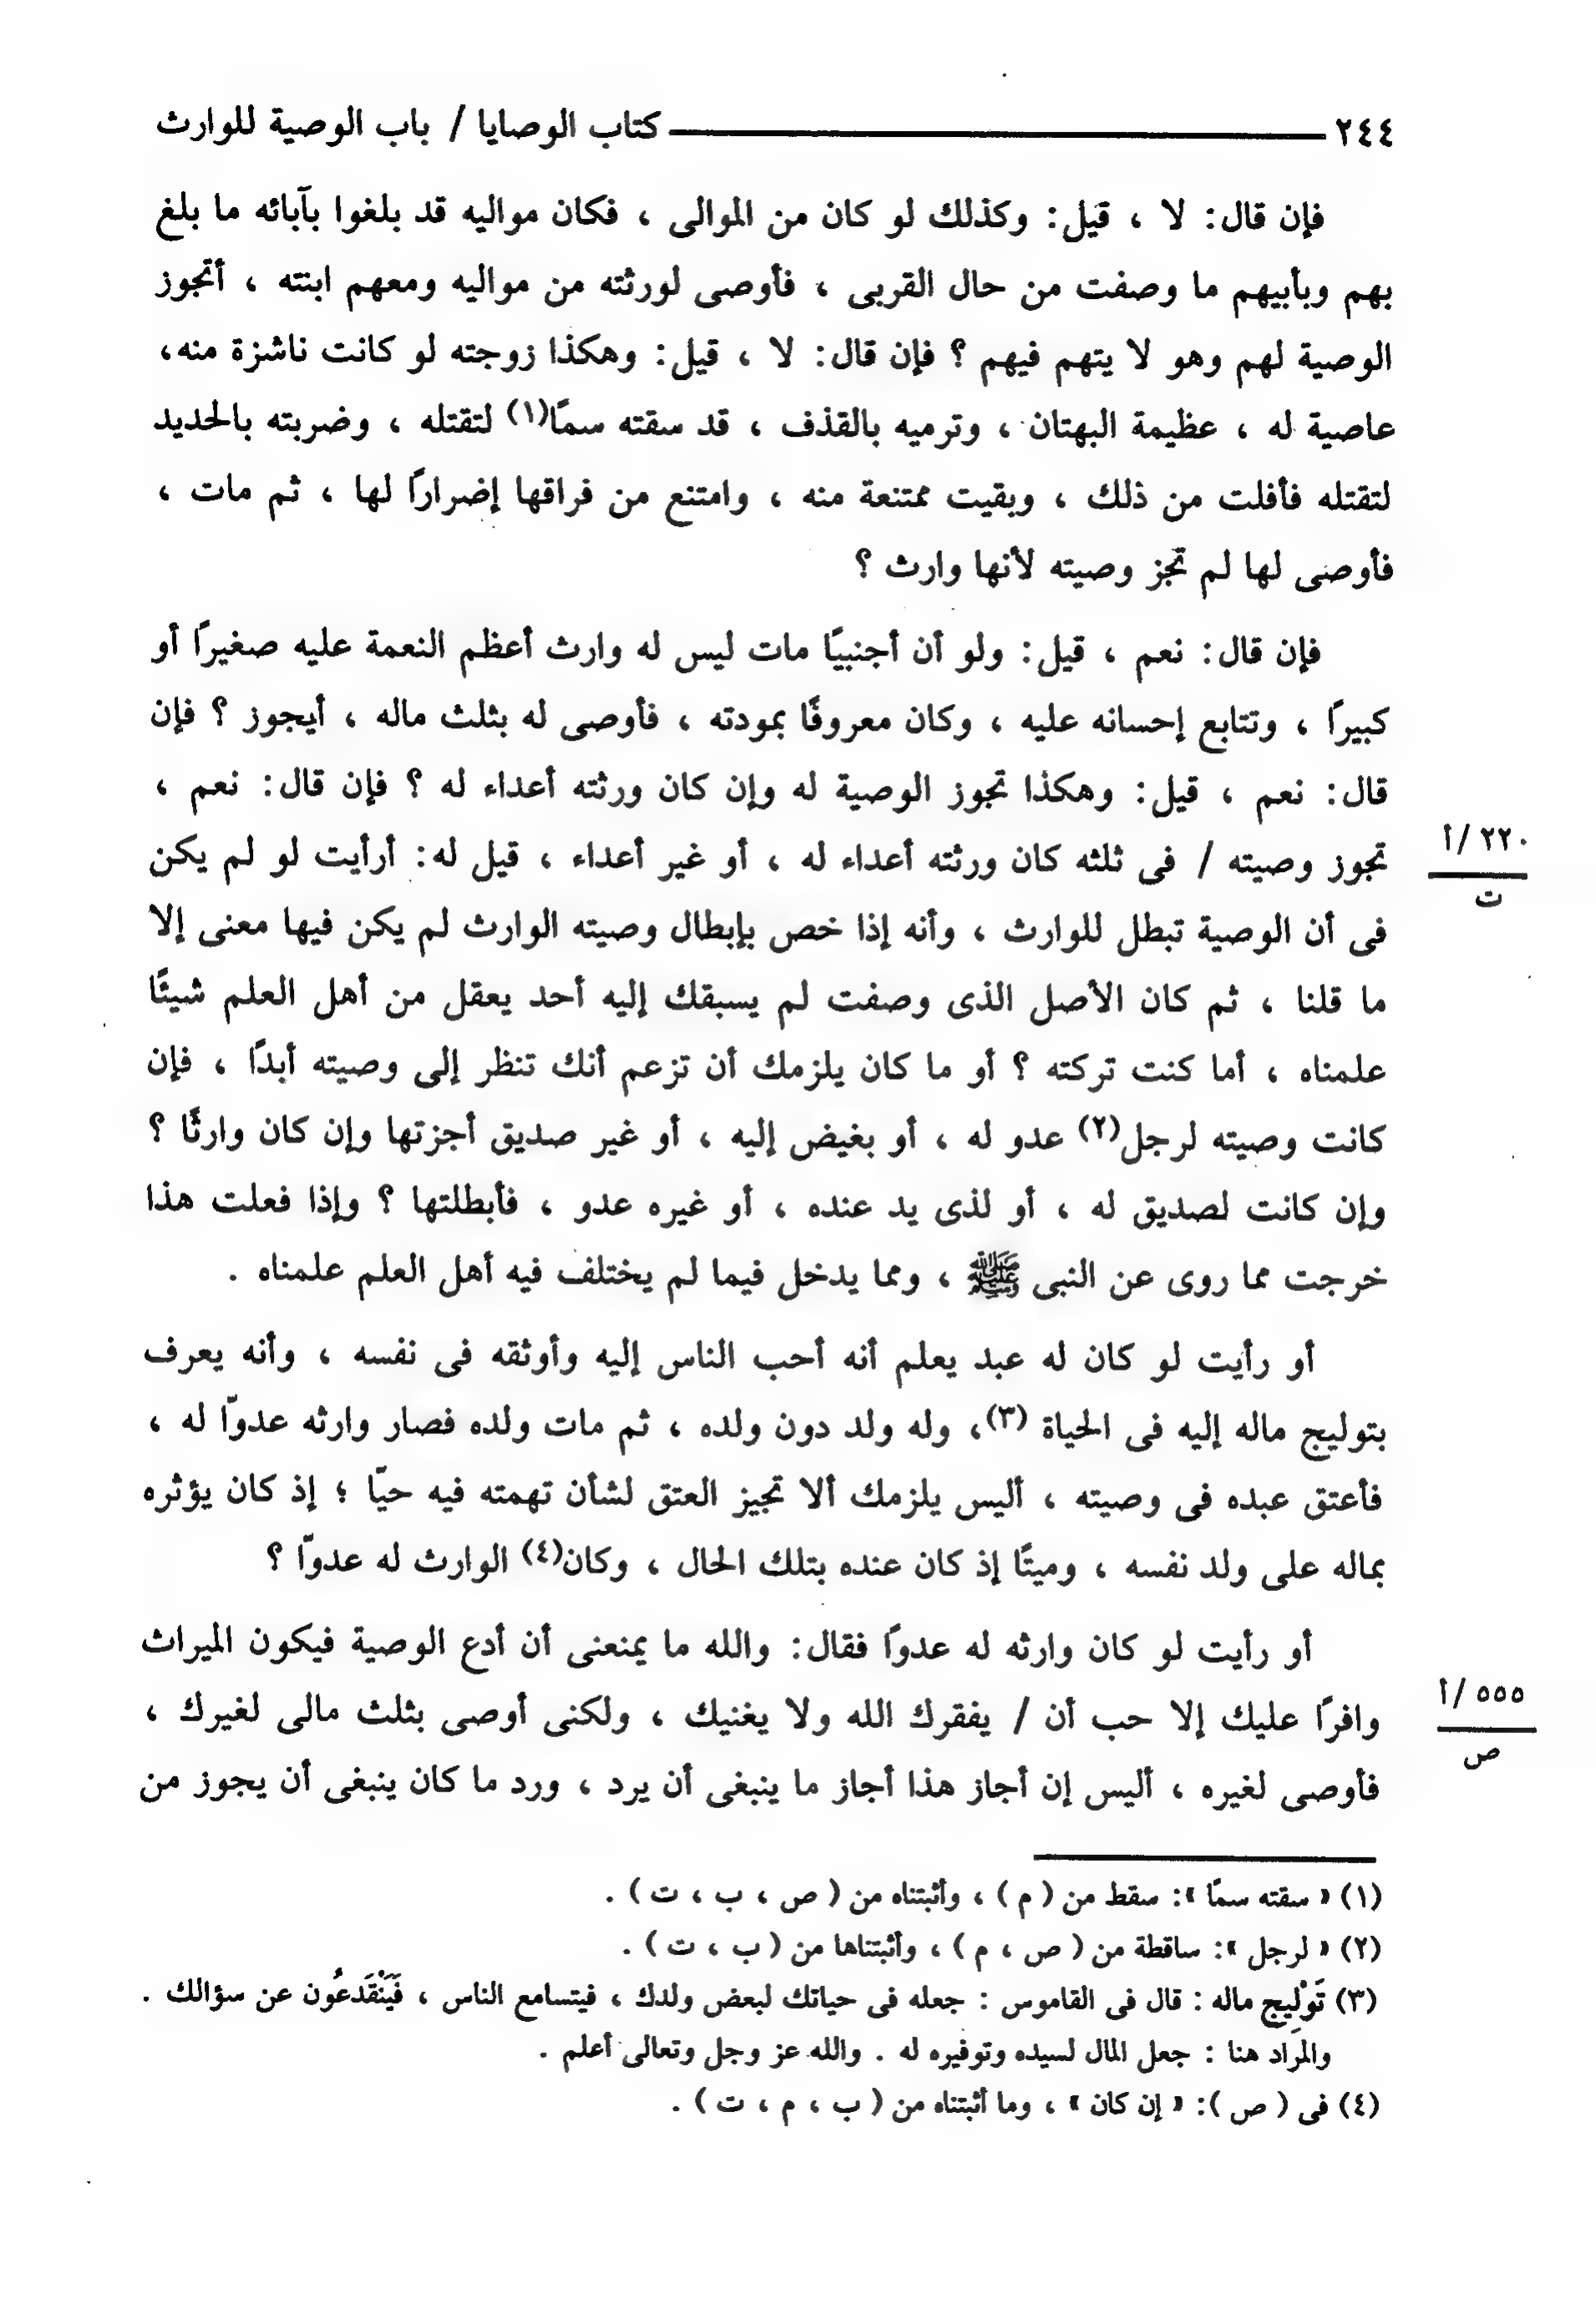 ٢٤٤ ــــــ كتاب الوصايا / باب الوصية للوارث
فإن قال: لا ، قيل: وكذلك لو كان من الموالى ، فكان مواليه قد بلغوا بآبائه ما بلغ
بهم وبأبيهم ما وصفت من حال القربى ، فأوصى لورثته من مواليه ومعهم ابنته ، أتجوز
الوصية لهم وهو لا يتهم فيهم ؟ فإن قال: لا ، قيل: وهكذا زوجته لو كانت ناشزة منه،
عاصية له ، عظيمة البهتان ، وترميه بالقذف ، قد سقته سمًا(١) لتقتله ، وضربته بالحديد
لتقتله فأفلت من ذلك ، وبقيت ممتنعة منه ، وامتنع من فراقها إضرارًا لها ، ثم مات ،
فأوصى لها لم تجز وصيته لأنها وارث ؟
فإن قال: نعم ، قيل: ولو أن أجنبيًا مات ليس له وارث أعظم النعمة عليه صغيرًا أو
كبيرًا ، وتتابع إحسانه عليه ، وكان معروفًا بمودته ، فأوصى له بثلث ماله ، أيجوز ؟ فإن
قال: نعم ، قيل: وهكذا تجوز الوصية له وإن كان ورثته أعداء له ؟ فإن قال: نعم ،
تجوز وصيته / فى ثلثه كان ورثته أعداء له ، أو غير أعداء ، قيل له: أرأيت لو لم يكن
٢٢٠ /أ
ت
فى أن الوصية تبطل للوارث ، وأنه إذا خص بإبطال وصيته الوارث لم يكن فيها معنى إلا
ما قلنا ، ثم كان الأصل الذى وصفت لم يسبقك إليه أحد يعقل من أهل العلم شيئًا
علمناه ، أما كنت تركته ؟ أو ما كان يلزمك أن تزعم أنك تنظر إلى وصيته أبدًا ، فإن
كانت وصيته لرجل(٢) عدو له ، أو بغيض إليه ، أو غير صديق أجزتها وإن كان وارثًا ؟
وإن كانت لصديق له ، أو لذى يد عنده ، أو غيره عدو ، فأبطلتها ؟ وإذا فعلت هذا
خرجت مما روى عن النبى ﷺ ، ومما يدخل فيما لم يختلف فيه أهل العلم علمناه .
أو رأيت لو كان له عبد يعلم أنه أحب الناس إليه وأوثقه فى نفسه ، وأنه يعرف
بتوليج ماله إليه فى الحياة (٣)، وله ولد دون ولده ، ثم مات ولده فصار وارثه عدوّا له ،
فأعتق عبده فى وصيته ، أليس يلزمك ألا تجيز العتق لشأن تهمته فيه حيّا ؛ إذ كان يؤثره
بماله على ولد نفسه ، وميتًا إذ كان عنده بتلك الحال ، وكان(٤) الوارث له عدوّا ؟
أو رأيت لو كان وارثه له عدوًا فقال: والله ما يمنعنى أن أدع الوصية فيكون الميراث
وافرًا عليك إلا حب أن / يفقرك الله ولا يغنيك ، ولكنى أوصى بثلث مالى لغيرك ،
٥٥٥ /أ
ص
فأوصى لغيره ، أليس إن أجاز هذا أجاز ما ينبغى أن يرد ، ورد ما كان ينبغى أن يجوز من
(١) « سقته سمًا »: سقط من ( م ) ، وأثبتناه من ( ص ، ب ، ت ) .
(٢) « لرجل »: ساقطة من ( ص ، م ) ، وأثبتناها من ( ب ، ت ) .
(٣) تَوْلِيج ماله : قال فى القاموس : جعله فى حياتك لبعض ولدك ، فيتسامع الناس ، فَيَنْقَدعُون عن سؤالك .
والمراد هنا : جعل المال لسيده وتوفيره له . والله عز وجل وتعالى أعلم .
(٤) فى ( ص ): « إن كان » ، وما أثبتناه من ( ب ، م ، ت ) .